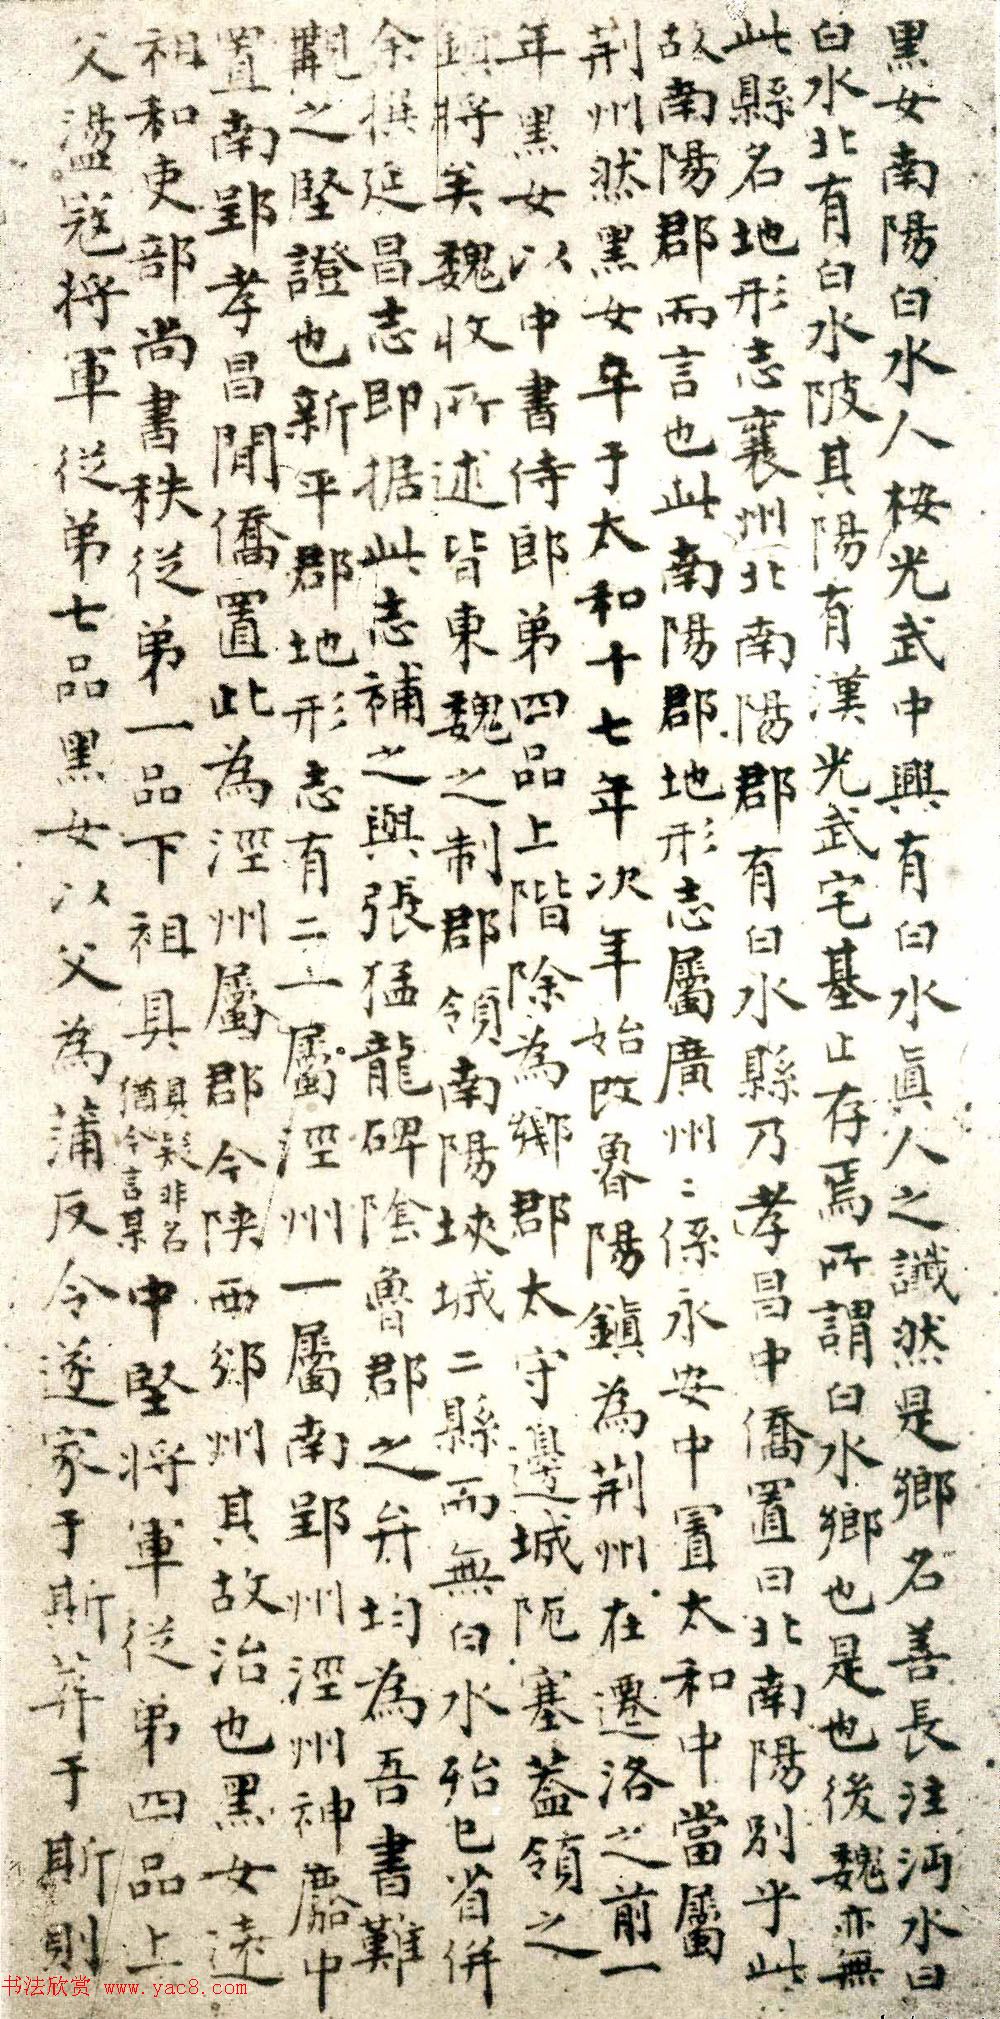 黑女南陽白水人桉光武中興有白水真人之讖然是鄉名善長注沔水曰
白水北有白水陂其陽有漢光武宅基止存焉所謂白水鄉也是也後魏亦無
此縣名地形志襄州北南陽郡有白水縣乃孝昌中僑置曰北南陽別乎此
故南陽郡而言也此南陽郡地形志屬廣州二係永安中置太和中當屬
荆州然黑女卒于太和十七年次年始改魯陽鎮為荆州在遷洛之前一
年黑女以中書侍郎弟四品上階除為鄉郡太守邊城阨塞蓋領之
鎮將矣魏收所述皆東魏之制郡領南陽埉城二縣而無白水殆已省併
余撰延昌志即据此志補之與張猛龍碑陰魯郡之弁均為吾書難
覯之堅證也新平郡地形志有二一屬涇州一屬南郢州涇州神䴥中
置南郢孝昌閒僑置此為涇州屬郡今陝西邠州其故治也黑女遠
祖和吏部尚書秩從弟一品下祖具具疑非名猶今言某中堅將軍從弟四品上
父盪寇將軍從弟七品黑女以父為蒲反令遂家于斯葬于斯則
书法欣赏 www.yac8.com